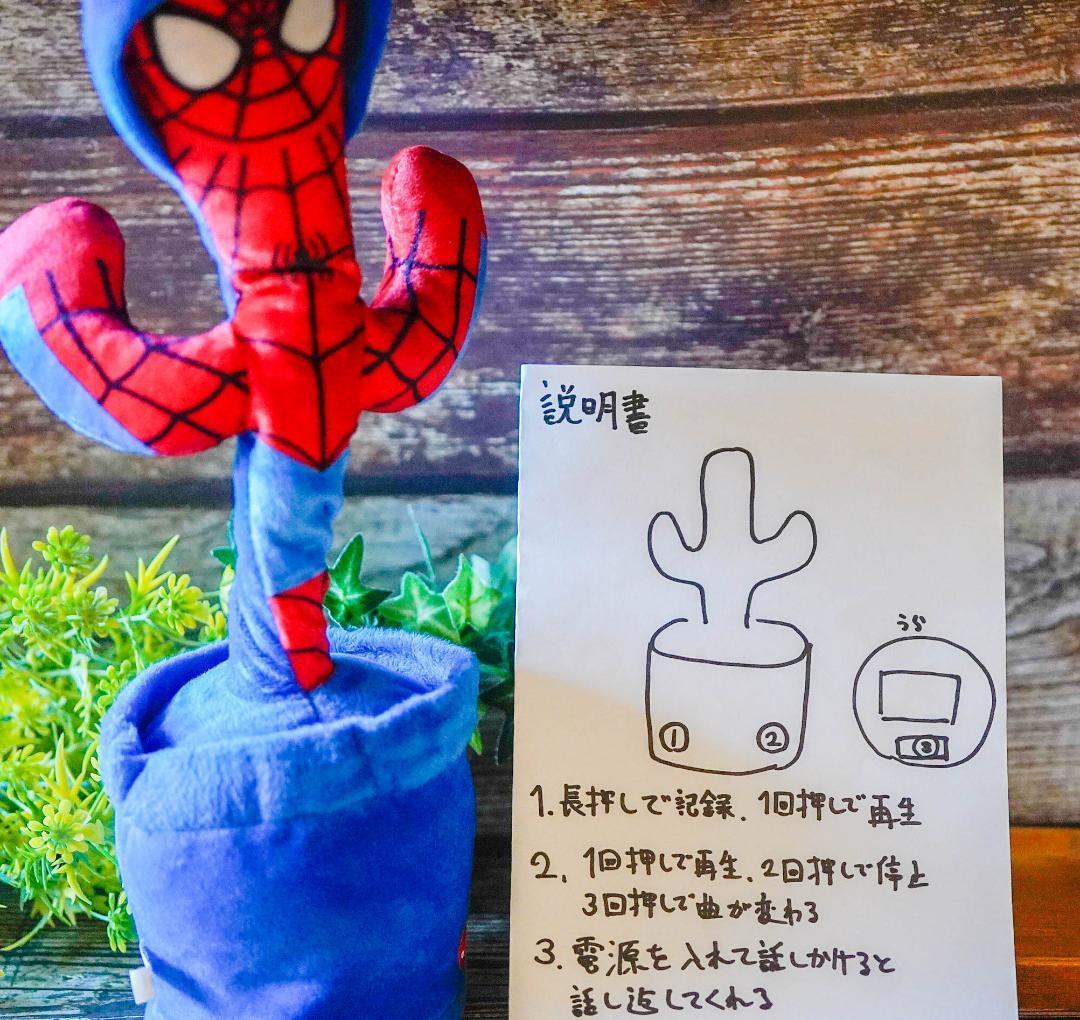 説明書
うら
① ②
③
1.長押しで記録、1回押しで再生
2、1回押しで再生、2回押しで停止
3回押しで曲が変わる
3.電源を入れて話しかけると
話し返してくれる